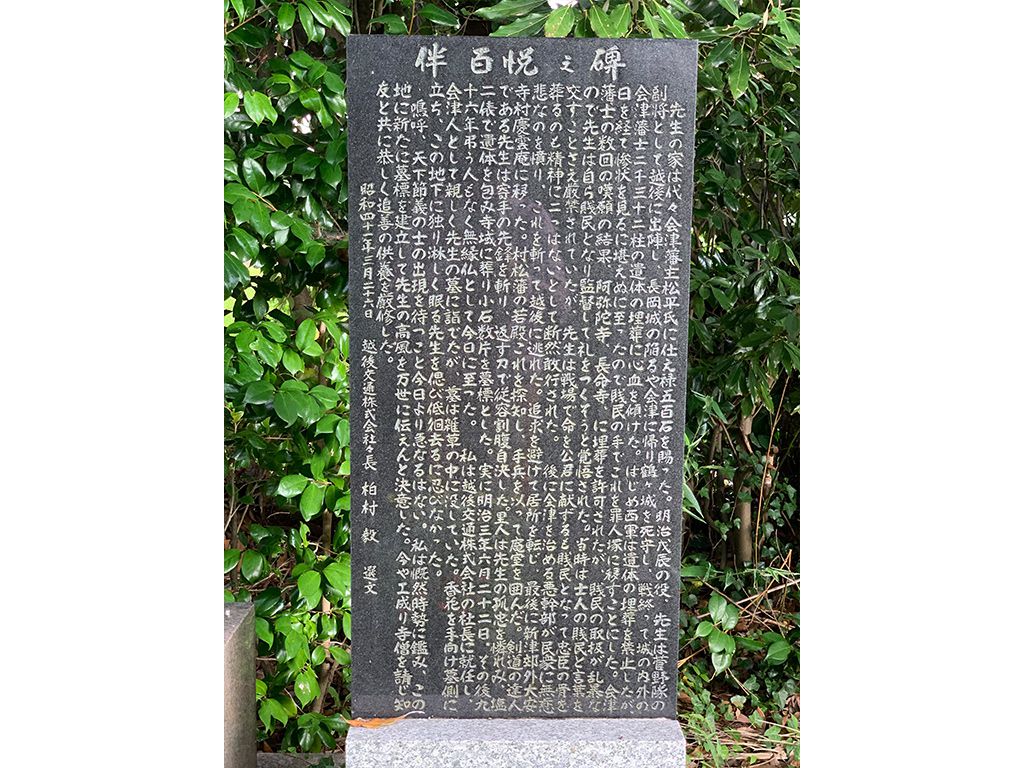 伴百悦之碑
先生の家は代々会津藩主松平氏に仕え禄五百石を賜った。明治戊辰の役、先生は萱野隊の
副将として越後に出陣し、長岡城の陥るや会津に帰り鶴ヶ城を死守し、戦終って城の内外の
会津藩士二千三十二柱の遺体の埋葬に心血を傾けた。はじめ西軍は遺体の埋葬を禁止したが
日を経て惨状を見るに堪えぬに至ったので賎民の手でこれを罪人塚に移すことにした。会津
藩士の数回の嘆願の結果、阿弥陀寺、長命寺、に埋葬を許可されたが、賎民の取扱が乱暴な
ので先生は自ら賎民となり監督して礼をつくそうと覚悟された。当時は士人の賎民と言葉を
交すことさえ厳禁されていたが、先生は戦場で命を公君に献ずるも賎民となって忠臣の骨を
葬るのも精神に二つはないとして断然敢行された。後に会津を治める悪幹部が民衆に無慈
悲なのを憤り、これを斬って越後に逃れた。追求を避けて居所を転じ、最後に新津郊外大安
寺村慶雲庵に移った。村松藩の若殿これを探知し、手兵を以って庵室を囲んだ。剣道の達人
である先生は寄手の先鋒を斬り、返す刀で従容割腹自決した。里人は先生の孤忠を憐れみ、塩
二俵で遺体を包み寺域に葬り小石数片を墓標とした。実に明治三年六月二十二日、その後九
十六年弔う人もなく無縁仏として今日に至った。私は越後交通株式会社の社長に就任し
会津人として親しく先生の墓に詣でたが、墓は雑草の中に没していた。香花を手向け墓側に
立ち、この地下に独り淋しく眠る先生を偲び低徊去るに忍びなかった。
嗚呼、天下節義の士の出現を待つこと今日より急なるはない。私は慨然時勢に鑑み、この
地に新たに墓標を建立して先生の高風を万世に伝えんと決意した。今や工成り寺僧を請じ知
友と共に恭しく追善の供養を厳修した。
昭和四十一年三月二十六日　越後交通株式会社々長　柏村　毅　選文